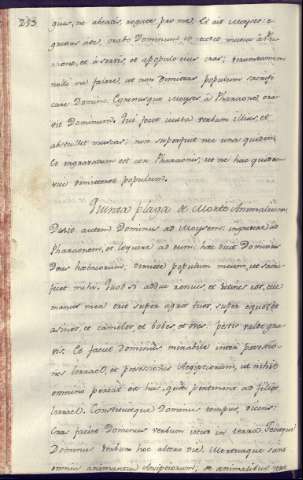 233
guis, ne abeatis, rogate pro me. Et ait Moyses: e-
gressus a te, orabo Dominum, et recedet musca a Pha-
raone, et a servis, et a populo eius cras; verumtamen
noli me fallere, ut non dimittas populum sacrifi-
care Domino. Egressusque Moyses a Pharaone, ora-
vit Dominum. Qui fecit iuxta verbum illius, et
abstulit muscas; non superfuit ne una quidem.
Et ingravatum est cor Pharaonis, nec hac quidem
vice dimitteret populum.
Quinta plaga de Morte Animalium
Dixit autem Dominus ad Moysen: ingredere ad
Pharaonem, et loquere ad eum: haec dicit Dominus
Deus haebreorum, dimitte populum meum, ut sacri-
ficet mihi. Quod si adhuc renuis, et retines eos, ecce
manus mea erit super agros tuos, super equos et
asinos, et camelos et boves et oves pestis valde gra-
vis. Et faciet Dominus mirabile inter possessio-
nes Israel, et possessiones Aegiptiorum, ut nihil
omnino pereat ex his, quae pertinent ad filios
Israel. Constituitque Dominus tempus, dicens:
Cras faciet Dominus verbum istud in terra. Fecitque
Dominus verbum hoc altera die. Mortuaque sunt
omnia animantia Aegiptiorum, de animalibus vero